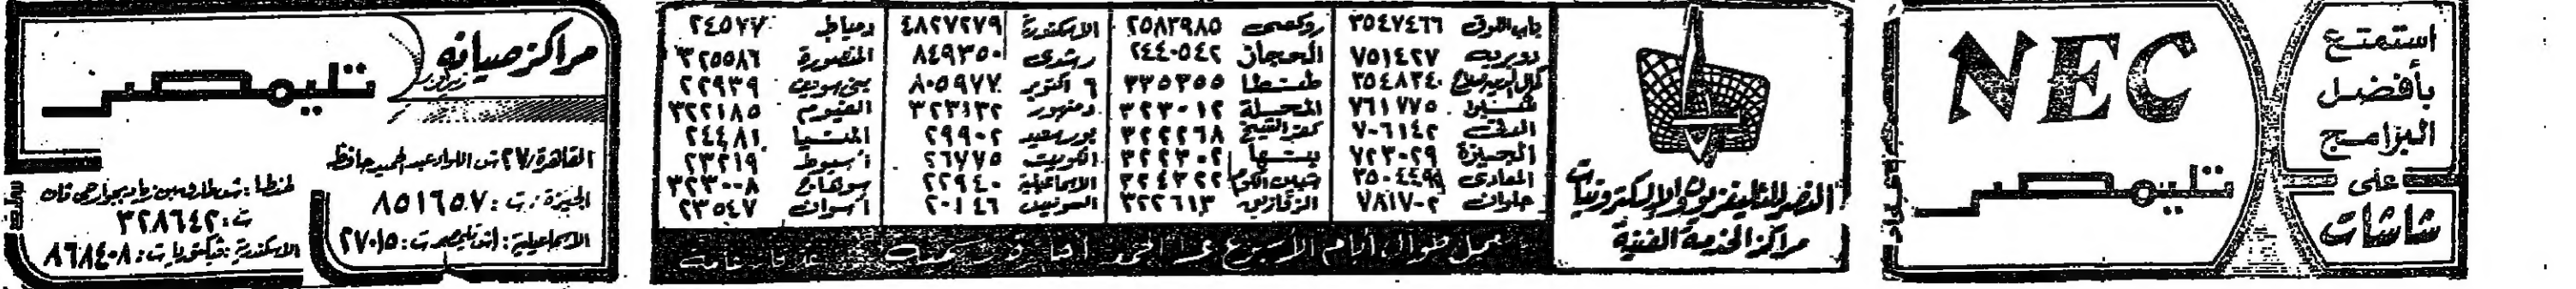 استمتع
بأفضل
البرامج
على
شاشات
NEC
تليمصر
النصر للتليفزيون والإلكترونيات
مراكز الخدمة الفنية
باب اللوق ٣٥٤٧٤٦٦ روكسى ٢٥٨٣٩٨٥ الاسكندرية ٤٨٢٧٢٧٩ دمياط ٢٤٥٧٧
دوبريه ٧٥١٤٢٧ الحجاز ٢٤٤٠٥٤٢ رشدى ٨٤٩٣٥٠ المنصورة ٣٢٥٥٨٦
٣٥٤٨٣٤٠ طنطا ٣٣٥٣٥٥ ٦ اكتوبر ٨٠٥٩٧٧ بنى سويف ٢٢٩٣٩
٧٦١٧٧٥ المحلة ٣٢٣٠١٢ دمنهور ٣٢٣١٣٢ الفيوم ٣٢٢١٨٥
الدقى ٧٠٦١٤٢ كفر الشيخ ٣٢٢٢٦٨ بور سعيد ٢٩٩٠٢ المنيا ٢٤٤٨١
الجيزة ٧٢٣٠٢٩ بنها ٣٢٢٣٠٢ الكويت ٢٦٧٧٥ اسيوط ٢٣٢١٩
المعادى ٣٥٠٤٤٩٥ شبين الكوم ٣٢٤٣٢٢ الاسماعيلية ٢٢٩٤٠ سوهاج ٣٢٣٠٠٨
حلوان ٧٨١٧٠٢ الزقازيق ٣٢٢٦١٣ السويس ٢٠١٤٦ اسوان ٢٣٥٤٧
طوال أيام الأسبوع
مراكز صيانة
تليمصر
القاهرة: ٢٧ ش اللواء عبد الحميد حافظ
الجيزة: ت: ٨٥١٦٥٧
الاسماعيلية: ت: ٢٧٠١٥
طنطا: ش طارق بن زياد بجوار
ت: ٣٢٨٦٤٢
الاسكندرية: فيكتوريا ت: ٨٦٨٤٠٨